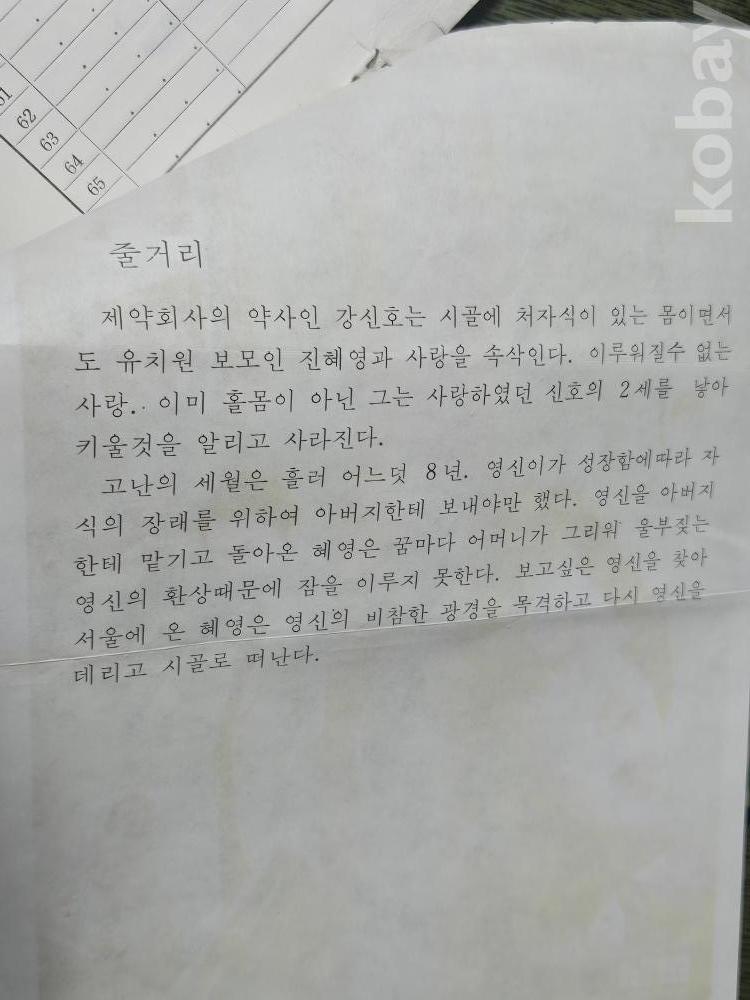 kobay
61
62
63
64
65
줄거리
제약회사의 약사인 강신호는 시골에 처자식이 있는 몸이면서
도 유치원 보모인 진혜영과 사랑을 속삭인다. 이루워질수 없는
사랑.. 이미 홀몸이 아닌 그는 사랑하였던 신호의 2세를 낳아
키울것을 알리고 사라진다.
고난의 세월은 흘러 어느덧 8년. 영신이가 성장함에따라 자
식의 장래를 위하여 아버지한테 보내야만 했다. 영신을 아버지
한테 맡기고 돌아온 혜영은 꿈마다 어머니가 그리워 울부짖는
영신의 환상때문에 잠을 이루지 못한다. 보고싶은 영신을 찾아
서울에 온 혜영은 영신의 비참한 광경을 목격하고 다시 영신을
데리고 시골로 떠난다.